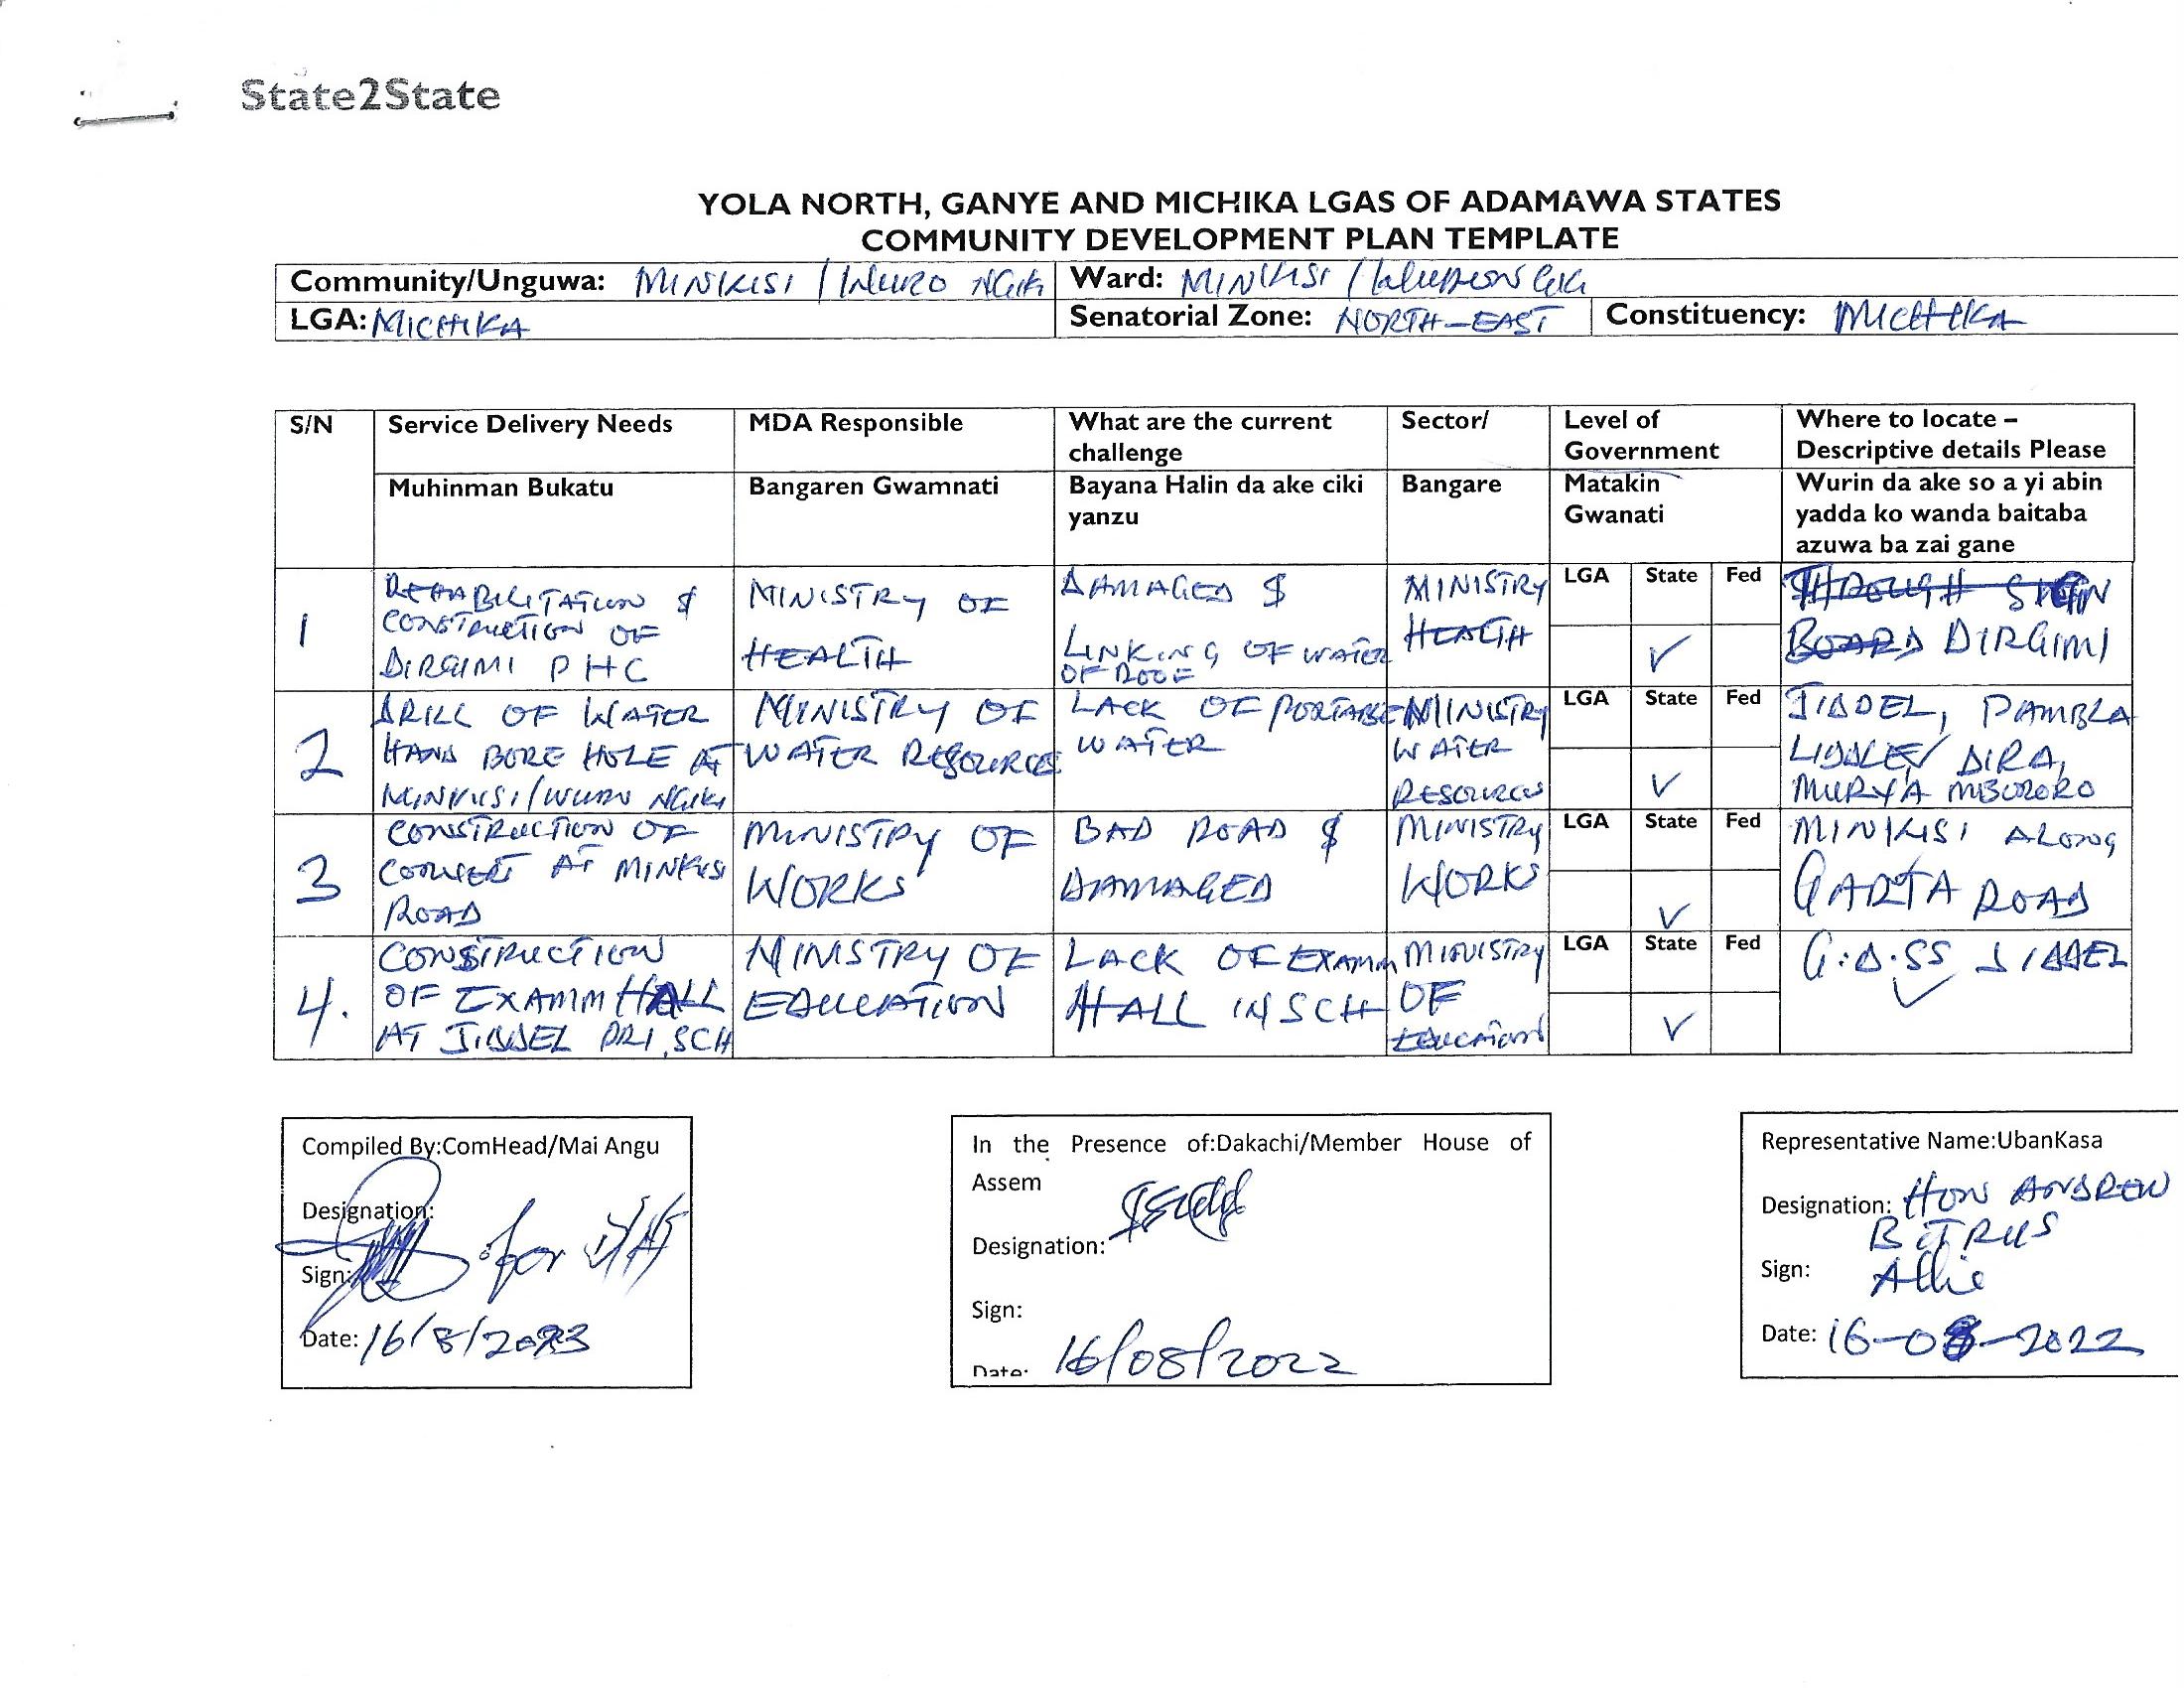 State2State
YOLA NORTH, GANYE AND MICHIKA LGAS OF ADAMAWA STATES
COMMUNITY DEVELOPMENT PLAN TEMPLATE
Community/Unguwa: MINKISI / WURO NGIKI Ward: MINKISI /
LGA: MICHIKA Senatorial Zone: NORTH-EAST Constituency: MICHIKA
S/N Service Delivery Needs MDA Responsible What are the current challenge Sector/ Level of Government Where to locate – Descriptive details Please
Muhinman Bukatu Bangaren Gwamnati Bayana Halin da ake ciki yanzu Bangare Matakin Gwanati Wurin da ake so a yi abin yadda ko wanda baitaba azuwa ba zai gane
1 REHABILITATION & CONSTRUCTION OF DIRGIMI PHC MINISTRY OF HEALTH DAMAGED & LINKING OF WATER OF ROOF MINISTRY HEALTH LGA State ✓ Fed THROUGH SIGN BOARD DIRGIMI
2 DRILL OF WATER HAND BORE HOLE AT MINKISI/WURO NGIKI MINISTRY OF WATER RESOURCES LACK OF PORTABLE WATER MINISTRY WATER RESOURCES LGA State ✓ Fed JIDDEL, PAMBLA LIDDLE, DIRA, MURYA MBORORO
3 CONSTRUCTION OF AT MINKISI ROAD MINISTRY OF WORKS BAD ROAD & DAMAGED MINISTRY WORKS LGA State ✓ Fed MINIKISI ALONG GARTA ROAD
4. CONSTRUCTION OF EXAMM HALL AT JIDDEL PRI, SCH MINISTRY OF EDUCATION LACK OF EXAMM HALL IN SCH MINISTRY OF EDUCATION LGA State ✓ Fed G.D.SS JIDDEL ✓
Compiled By:ComHead/Mai Angu
Designation:
Sign: for
Date: 16/8/2023
In the Presence of:Dakachi/Member House of
Assem
Designation:
Sign:
Date: 16/08/2022
Representative Name:UbanKasa
Designation: HON ANDREW
BITRUS
Sign:
Date: 16-08-2022